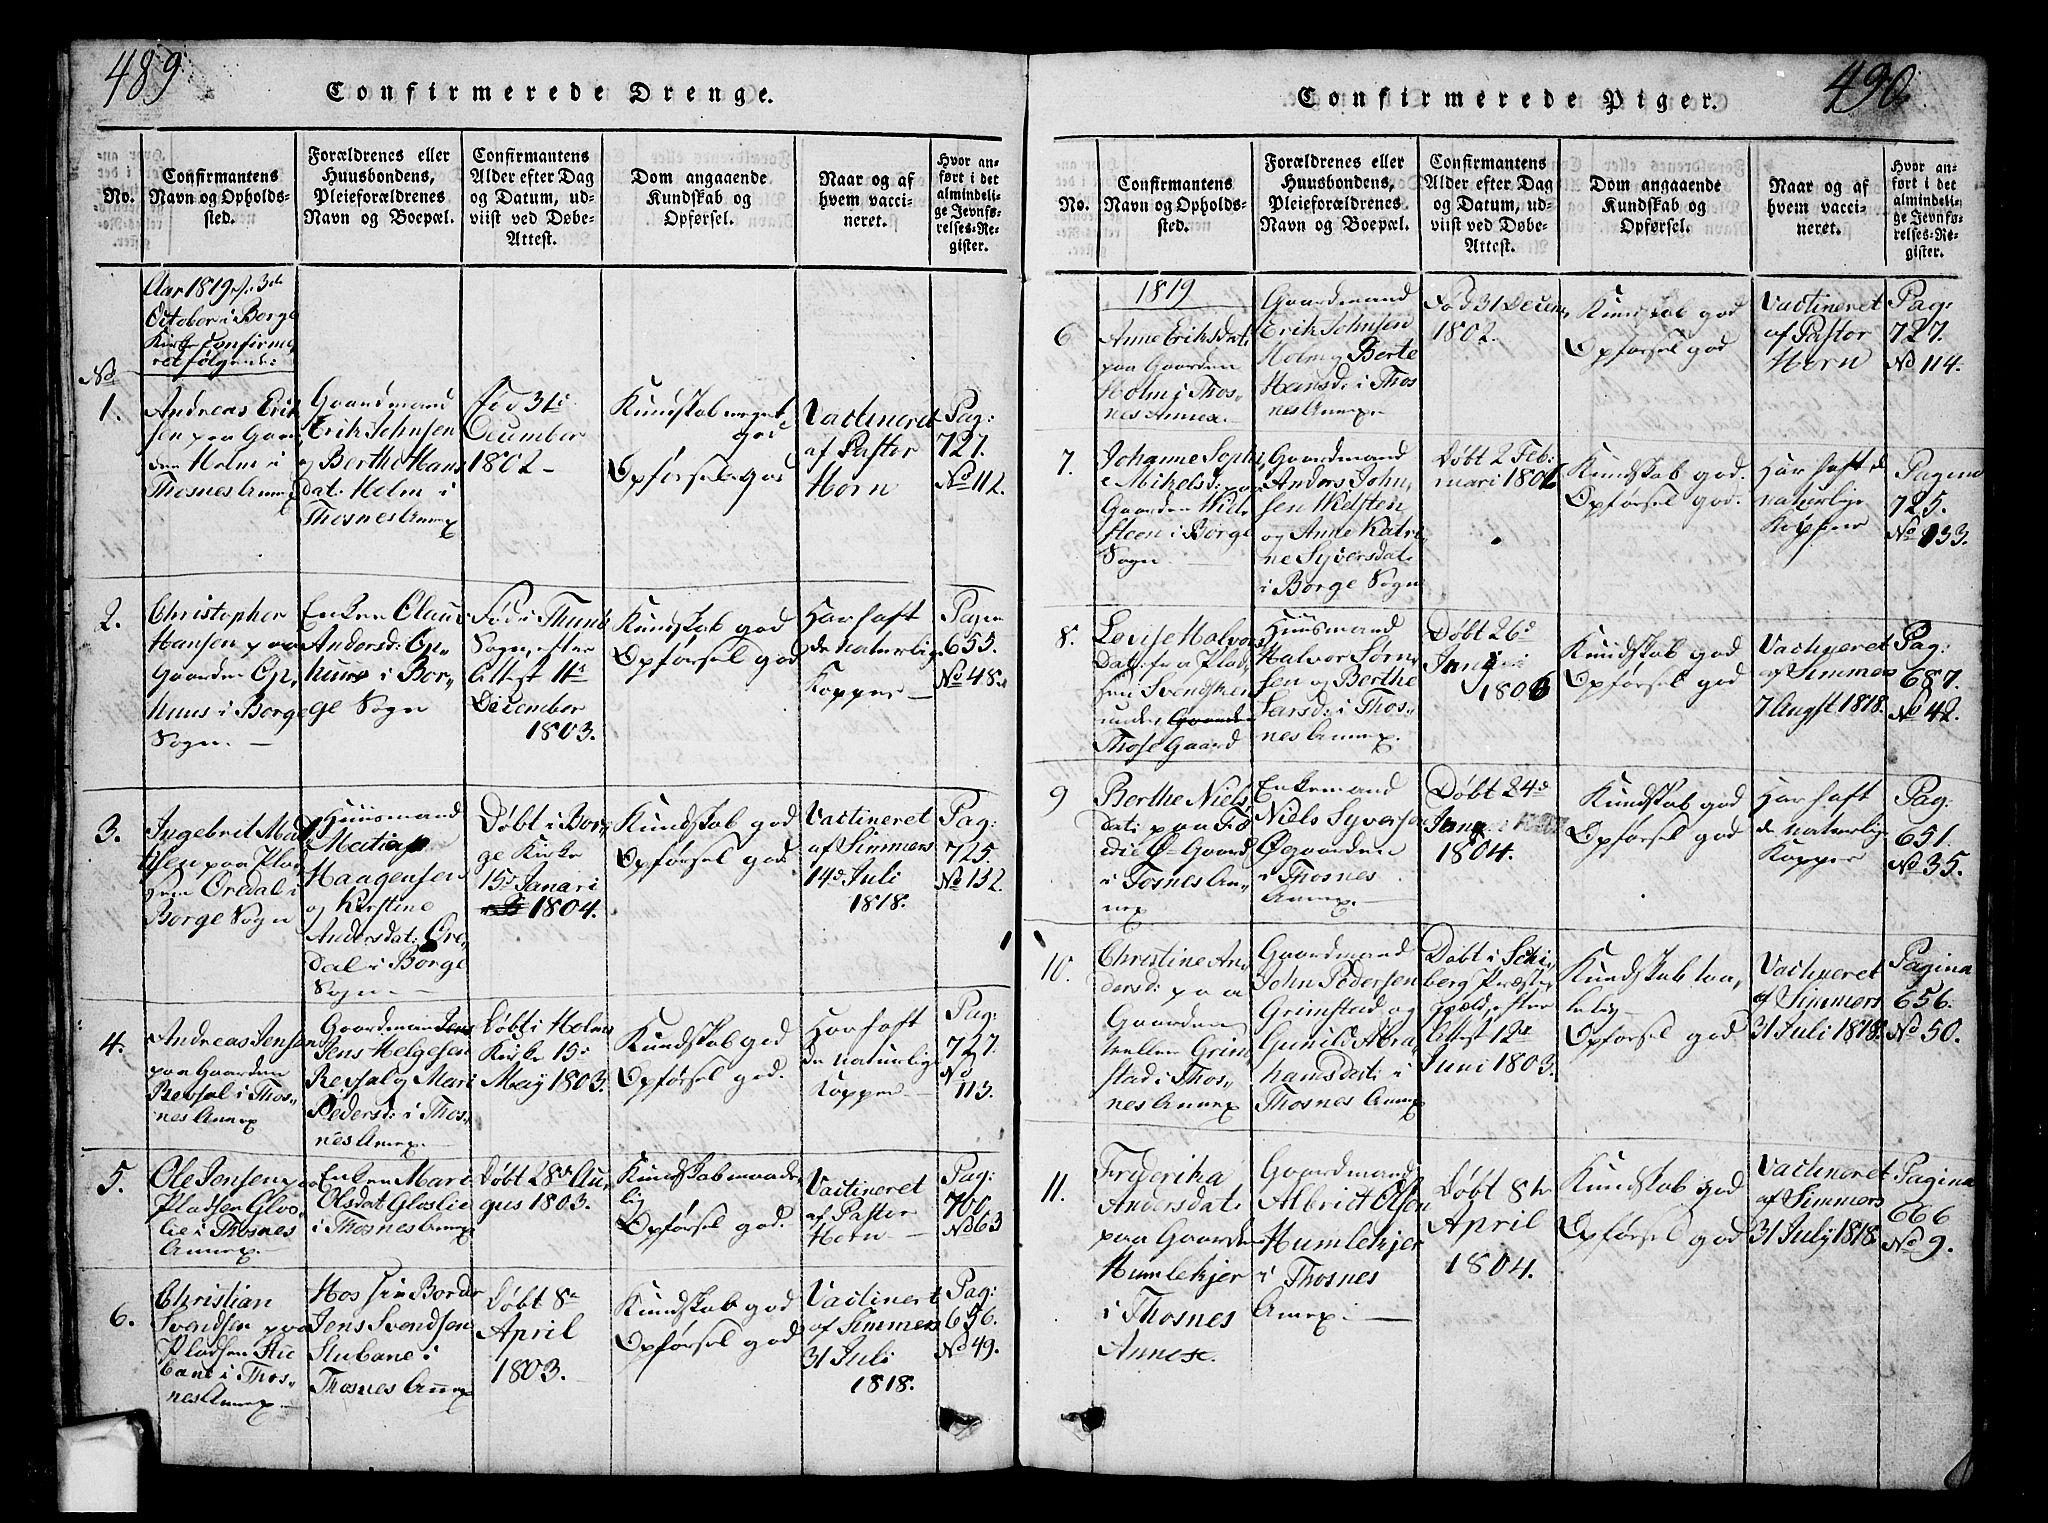 489.
Confirmerede Drenge.
No.
Confirmantens
Navn og Opholds-
sted.
Forældrenes eller
Huusbondens,
Pleieforældrenes
Navn og Boepæl.
Confirmantens
Alder efter Dag
og Datum, ud-
viist ved Døbe-
Attest.
Dom angaaende
Kundskab og
Opførsel.
Naar og af
hvem vacci-
neret.
Hvor an-
ført i det
almindeli-
ge Jevnfø-
relses-Re-
gister.
Aar 1819 3de
October i Borge
Kirke Confirme
ret følgende:
No
1.
Andreas Erik
sen paa Gaar
den Holm i
Thosnes Annex
Gaardmand
Erik Johnsen
og Berthe Hans
dat: Holm i
Thosnes Annex
Fød 31d
December
1802 -
Kundskab meget
god
Opførsel god
Vactineret
af Pastor
Horn
Pag:
727.
No 112.
2.
Christopher
Hansen paa
Gaarden Op,
huus i Borge
Sogn. -
Enken Olaug
Andersd: Op,
huus i Bor,,
ge Sogn
Fød i Thunø
Sogn, efter
Attest 11te
December
1803.
Kundskab god
Opførsel god
Har haft
de naturlig
Kopper -
Pagin
653.
No 48.
3.
Ingebrit Mat
sen paa Plad
sen Øredal i
Borge Sogn
Huusmand
Matias
Haagensen
og Kirstine
Andersdat: Øre,
dal i Borge
Sogn -
Døbt i Bor,
ge Kirke
15d Janari
1804.
Kundskab god
Opførsel god.
Vactineret
af Simmers
14d Juli
1818.
Pag:
725.
No 132.
4.
Andreas Jensen
paa Gaarden
Revsal i Thos,,
nes Annex
Gaardmand
Jens Helgesen
Revsal og Mari
Pedersd: i Thos,,
nes Annex. -
Døbt i Holms
Kirke 15d
May 1803.
Kundskab god
Opførsel god.
Har haft
de naturlig
Kopper -
Pag:
727.
No
113.
5.
Ole Jensen paa
Pladsen Glos,
lie i Thosnes
Annex. -
Enken Mari
Olsdat Gloslie
i Thosnes Annex
Døbt 28de Au,
gus 1803.
Kundskab maade,
lig
Opførsel god.
Vactineret
af Pastor
Horn -
Pag:
700.
No 63
6.
Christian
Svendsen paa
Pladsen Stu
bane i Thos,,
nes Annex. -
Hos sin Broder
Jens Svendsen
Stubane i
Thosnes Annex
Døbt 8n
April
1803.
Kundskab god
Opførsel god
Vactinert
af Simmers
31 Juli
1818.
Pag:
656.
No 49.
490.
Confirmerede Piger.
No.
Confirmantens
Navn og Opholds-
sted.
Forældrenes eller
Huusbondens,
Pleieforældrenes
Navn og Boepæl.
Confirmantens
Alder efter Dag
og Datum, ud-
viist ved Døbe-
Attest.
Dom angaaende
Kundskab og
Opførsel.
Naar og af
hvem vacci-
neret.
Hvor an-
ført i det
almindeli-
ge Jevnfø-
relses-Re-
gister.
1819
6
Anne Eriksdat:
paa Gaarden
Holm i Thos,,
nes Annex. -
Gaardmand
Erik Johnsen
Holm og Berte
Hansd: i Thos
nes Annex
Fød 31 Decem,
1802.
Kundskab god
Opførsel god
Vactineret
af Pastor
Horn
Pag:
727.
No 114.
7.
Johanne Sophi
e Mikelsd: paa
Gaarden Wil,
steen i Borge
Sogn -
Gaardmand
Anders John,
sen Wilsten
og Anne Katri
ne Syversdat.
i Borge Sogn
Døbt 2 Feb:
rnari
Kundskab god.
Opførsel god.
Har haft de
naturlige
Kopper
Pagina
725.
No 133.
8.
Lovise Halvors
Dat: paa Plad,
sen Svendsken
under
Those Gaard
Huusmand
Halvor Sørn,
sen og Berthe
Larsd: i Thos,,
nes Annex.
Døbt 26d
Kundskab god
Opførsel god
Vactineret
af Simmers
7 Augst 1818.
Pag:
687.
No 42.
9
Berthe Niels,
dat: paa
Ø-Gaard
i Tosnes An,
nex
Enkemand
Niels Syversen
Øgaarden
i Thosnes
Annex. -
Døbt 24d
1804.
Kundskab god
Opførsel god
Har haft
de naturlig
Kopper
Pag:
651.
No 35.
10.
Christine An,
dersd: paa
Gaarden
Mellem Grim
stad i Thos,,
nes Annex
Gaardmand
John Pedersen
Grimstad og
Gunild Abra
hamsdat: i
Thosnes Annex
Døbt i Schi,
berg Præste,
gæld, efter
Attest 12te
Juni 1803.
Kundskab taa,
lelig
Opførsel god
Vactineret
af Simmers
31 Juli 1818.
Pagina
656.
No 50.
11.
Frederika
Andersdat:
paa Gaarden
Humlekjer
i Thosnes
Annex.
Gaardmand
Albrict Olsen
Humlekjer
i Thosnes
Annex. -
Døbt 8de
April
1804.
Kundskab god
Opførsel god
Vactineret
af Simmers
31 July 1818.
Pagina
666
No 9.